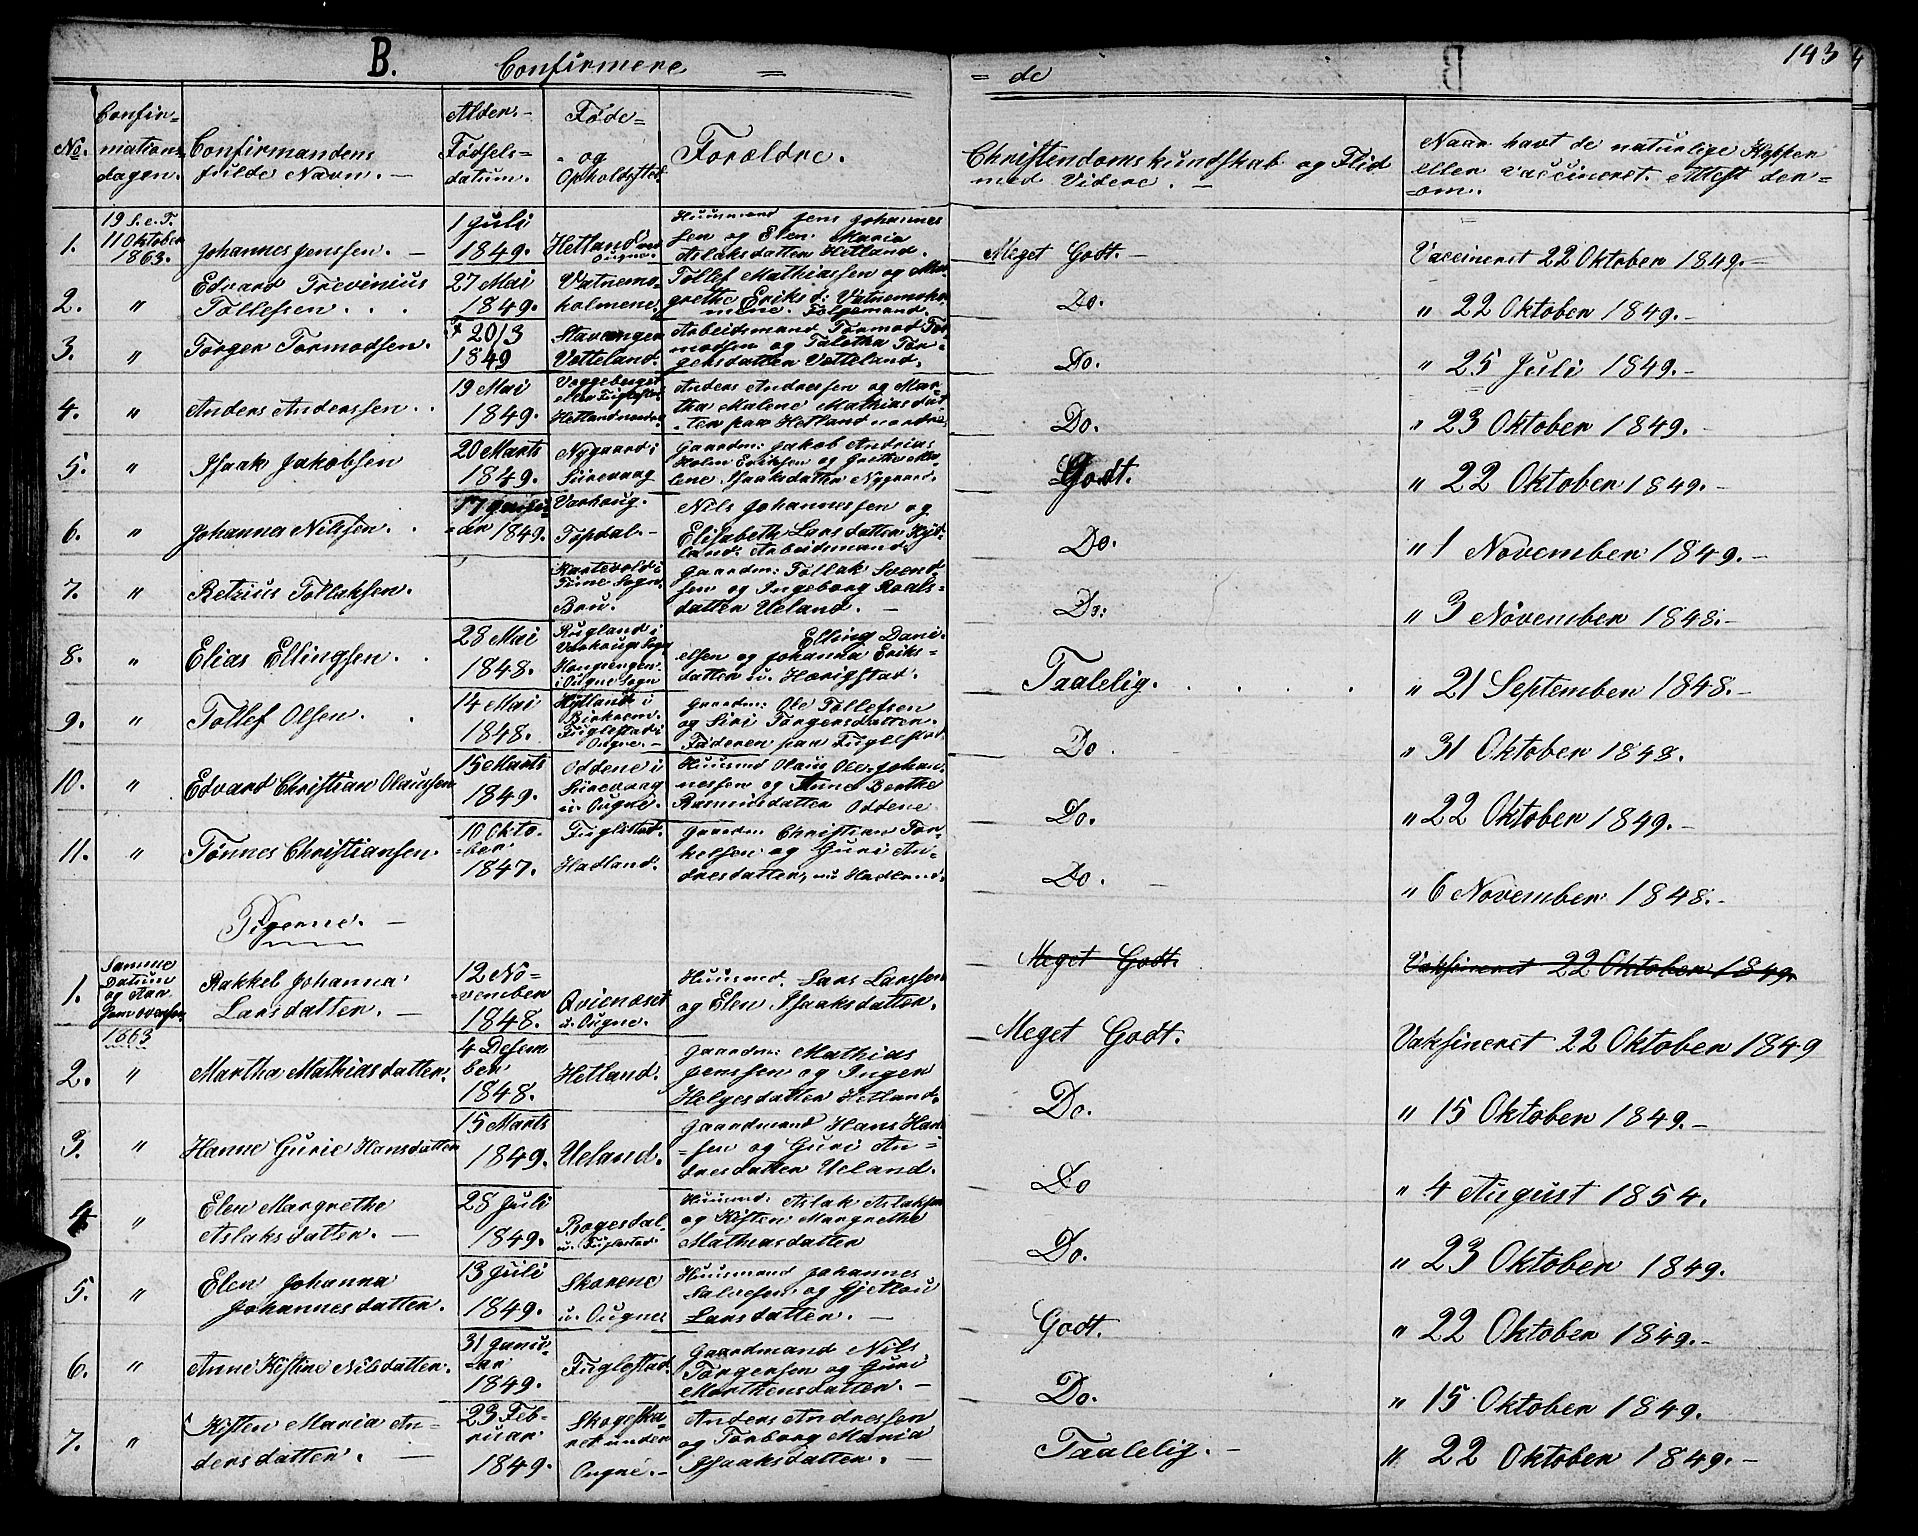 B. Confirmere =
= de 143
No.
Confir=
mations
dagen.
Confirmandens
fulde Navn. —
Alder.
Fødsels-
datum.
Føde=
og
Opholdssted
Forældre.
Christendomskundskab og Flid
med Videre. —
Naar havt de naturlige Kopper
eller vaccineret. Attest der=
=om.
1.
19 S. e. T.
11 Oktober
1863.
Johannes Jenssen. —
1 Juli
1849.
Hetland
Ougne.
Huusmand Jens Johannes
sen og Elen Maria
Aslaksdatter Hetland.
Meget Godt. —
Vaccineret 22 Oktober 1849. —
2. "
Edvard Trevinius
Tollefsen . . .
27 Mai
1849.
Vatnemo
holmene.
Tollef Mathiassen og Mar
grethe Eriksd: Vatnemohol
mene.
Do.
" 22 Oktober 1849. —
3. "
Torger Tormodsen.
20/3
1849
Stavanger
Votteland.
Arbeidsmand Tormod Tor
modsen og Taletha Tor=
gersdatter Votteland.
Do.
" 25 Juli 1849. —
4. "
Anders Anderssen . .
19 Mai
1849.
Hetlandnordre
Anders Andressen og Mar
tha Malene Mathiasdat
ter paa Hetland nordre
Do.
" 23 Oktober 1849. —
5. "
Isaak Jakobsen
20 Marts
1849.
Nygaard i
Sirevaag
Gaardm: Jakob Andreas
Holm Eriksen og Grethe Ma
lene Isaaksdatter Nygaard.
Godt.
" 22 Oktober 1849. —
6. "
Johannes Nilssen. .
17 Janu
ar 1849.
Varhoug.
Topdal. —
Nils Johannessen og
Elisabeth Larsdatter Hød
land. Arbeidsmand.
Do.
" 1 November 1849. —
7. "
Retzius Tollaksen.
Time Sogn.
Bru.
Gaardm: Tollak Svend
sen og Ingeborg Roals=
datter Ueland. —
Do:
" 3 November 1848. —
8. "
Elias Ellingsen. .
28 Mai
1848.
Rugland i
Varhoug Sogn
i Ougne Sogn
Elling Dani-
elsen og Johanna Eriks=
datter u. Hærigstad.
Taalelig. . . . .
" 21 September 1848. —
9. "
Tollef Olsen. .
14 Mai
1848.
Hytland i
Birkrem.
Fuglestad i
Ougne. —
Gaardm: Ole Tollefsen
og Siri Torgersdatter.
Faderen paa Fuglestad
Do
" 31 Oktober 1848.
10. "
Edvard Christian Olaussen
15 Marts
1849.
Oddene i
Sirevaag
u. Ougne.
Huusmd Olaus Ole Johan
nessen og Anne Berthe
Rasmusdatter Oddene
Do.
" 22 Oktober 1849. —
11. "
Tønnes Christiansen.
10 Okto-
ber
1847.
Fuglestad.
Hadland.
Gaardm: Christian Tor-
kelsen og Guri An=
dresdatter, nu Hadland.
Do. —
" 6 November 1848. —
Pigerne. —
1.
Samme
Datum
og Aar
som ovenfor
1863
Rakkel Johanna
Larsdatter. —
12 No=
vember
1848.
Qvienæset
u. Ougne.
Huusmd. Lars Larssen
og Elen Isaaksdatter.
Meget Godt.
Vaksineret 22 Oktober 1849.
Meget Godt.
Vaksineret 22 Oktober 1849
2. "
Martha Mathiasdatter.
4 Desem
ber
1848.
Hetland.
Gaardm: Mathias
Jenssen og Inger
Helgesdatter Hetland.
Do.
" 15 Oktober 1849. —
3. "
Hanne Gurie Hansdatter
15 Marts
1849.
Ueland.
Gaardmand Hans Han
=sen og Guri An=
dresdatter Ueland.
Do
" 4 August 1854.
4 "
Elen Margrethe
Aslaksdatter. —
28 Juli
1849.
Bogesdal
u. Fuglestad
Huusmd: Aslak Aslaksen
og Kisten Margrethe
Mathiasdatter
Do.
" 23 Oktober 1849.
5. "
Elen Johanna
Johannesdatter.
13 Juli
1849.
Skarene
u. Ougne
Huusmand Johannes
Salvesen og Gjetlou
Larsdatter. —
Godt.
" 22 Oktober 1849. —
6. "
Anne Kistine Nilsdatter.
31 Janu-
ar
1849.
Fuglestad.
Gaardmand Nils
Torgersen og Guri
Morthensdatter. —
Do.
" 15 Oktober 1849.
7. "
Kisten Maria An-
dersdatter. —
23 Feb-
ruar
1849.
Skogeska-
ret under
Ougne. —
Anders Andressen
og Torborg Maria
Isaaksdatter. —
Taalelig. —
" 22 Oktober 1849. —